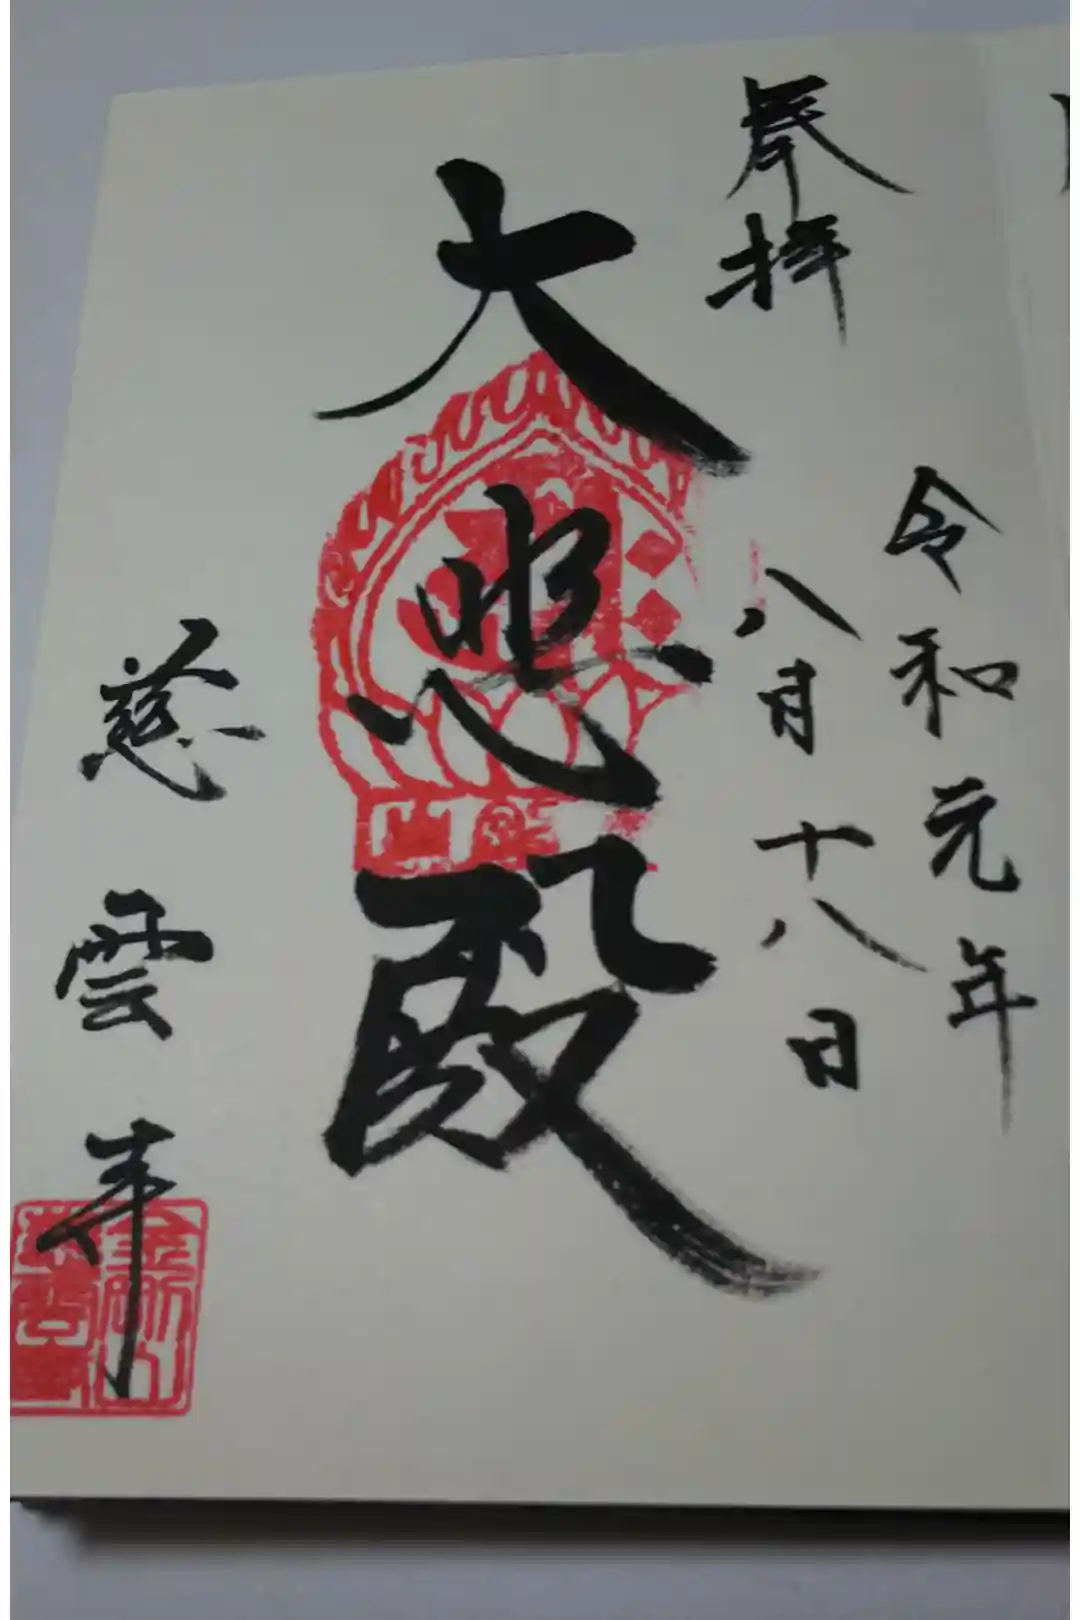 奉拝
令和元年
八月十八日
大悲殿
慈雲寺